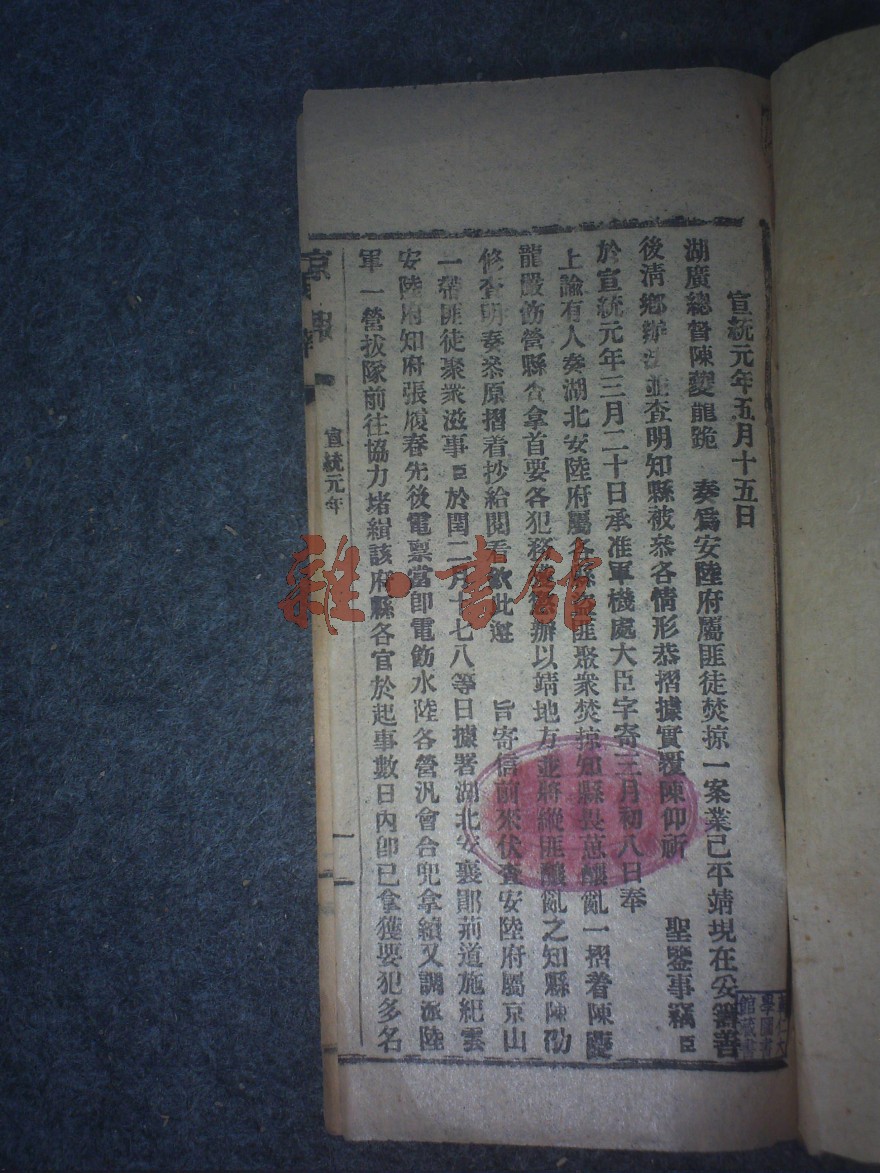 宣統元年五月十五日
湖廣總督陳夔龍跪 奏爲安陸府屬匪徒焚掠一案業已平靖現在妥籌善
後清鄉辦法並查明知縣被叅各情形恭摺據實覆陳仰祈 聖鑒事竊臣
於宣統元年三月二十日承准軍機處大臣字寄三月初八日奉
上諭有人奏湖北安陸府屬各縣 匪聚衆焚掠知縣畏葸釀亂一摺着陳夔
龍嚴飭營縣查拿首要各犯務 懲辦以靖地方並將縱匪釀亂之知縣陳劭
修查明奏叅原摺着抄給閱看欽此遵 旨寄信前來伏查安陸府屬京山
一帶匪徒聚衆滋事臣於閏二月十七八等日據署湖北安襄鄖荊道施紀雲
安陸府知府張履春先後電禀當卽電飭水陸各營汛會合兜拿續又調派陸
軍一營拔隊前往協力堵緝該府縣各官於起事數日內卽已拿獲要犯多名
京報
宣統元年
一
雜·書館